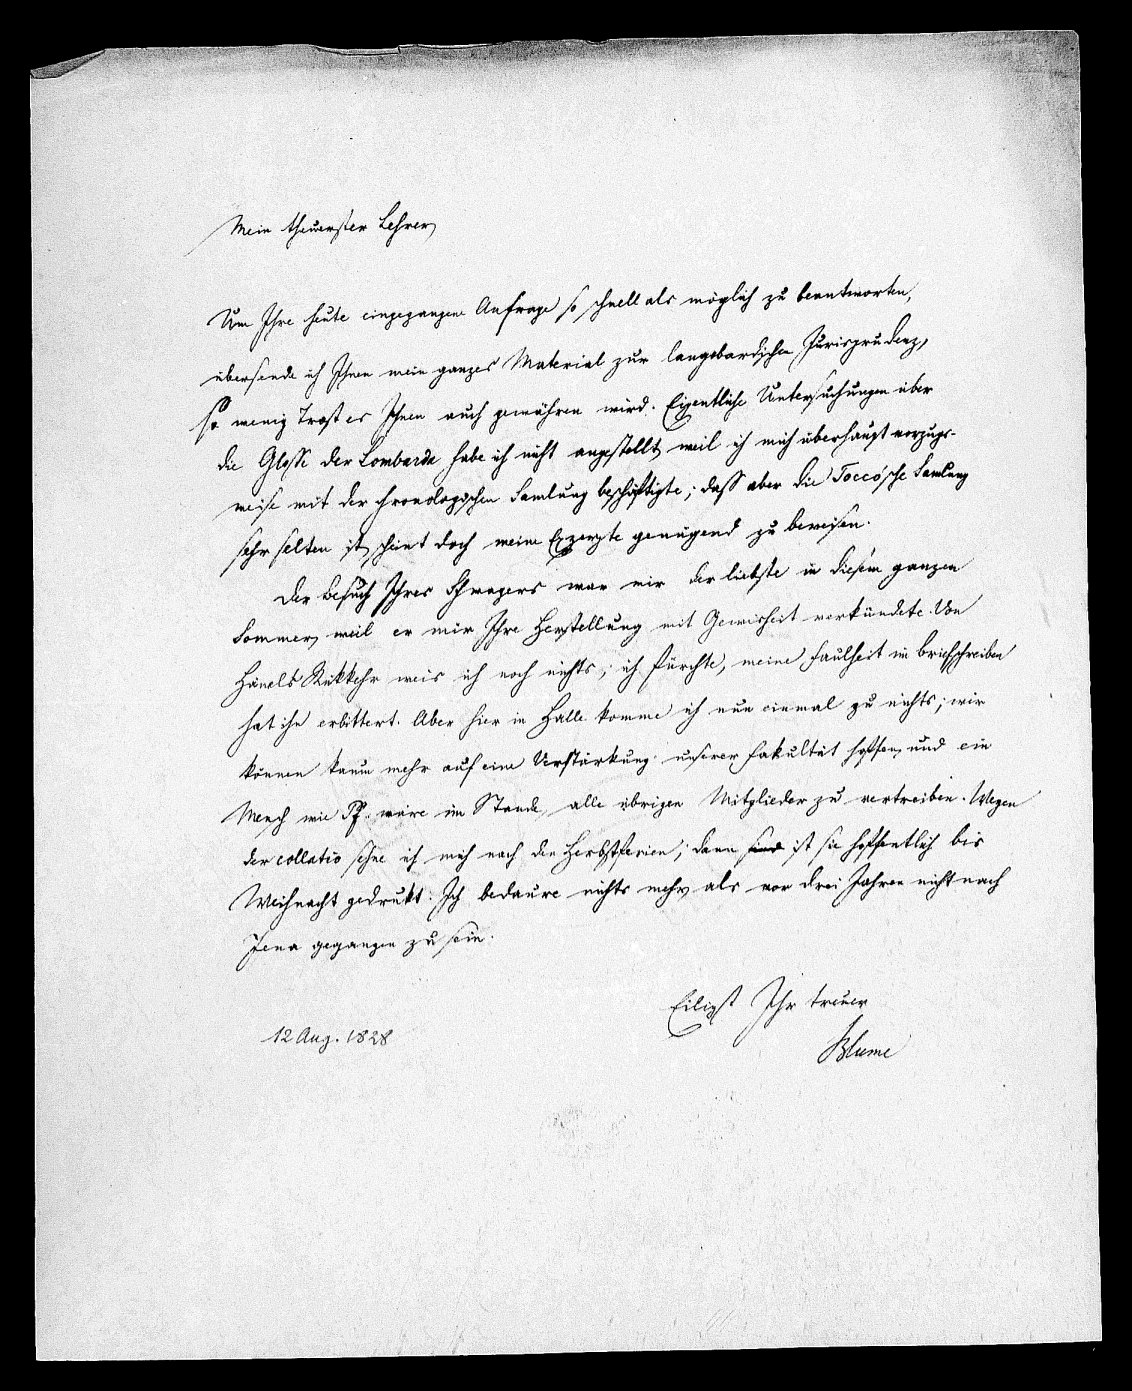 Mein theuerster Lehrer,
Um Ihre heute eingegangene Anfrage so schnell als möglich zu beantworten,
übersende ich Ihnen mein ganzes Material zur langobardischen Jurisprudenz,
so wenig Trost es Ihnen auch gewähren wird. Eigentliche Untersuchungen über
die Glosse der Lombarda habe ich nicht angestellt, weil ich mich überhaupt vorzugs-
weise mit der chronologischen Samlung beschäftigte; dass aber die Tocco'sche Samlung
sehr selten ist, scheint doch meine Exzerpte genügend zu beweisen.
Der Besuch Ihres Schwagers war mir der liebste in diesem ganzen
Sommer, weil er mir Ihre Herstellung mit Gewisheit verkündete. Von
Hänels Rükkehr weis ich noch nichts; ich fürchte, meine Faulheit im Briefschreiben
hat ihn erbittert. Aber hier in Halle komme ich nun einmal zu nichts; wir
können kaum mehr auf eine Verstärkung unserer Fakultät hoffen, und ein
Mensch wie Pf. wäre im Stande, alle übrigen Mitglieder zu vertreiben. Wegen
der collatio sehne ich mich nach den Herbstferien; dann sind ist sie hoffentlich bis
Weihnacht gedrukt. Ich bedaure nichts mehr, als vor drei Jahren nicht nach
Jena gegangen zu sein.
Eiligst Ihr treuer
Blume
12 Aug. 1828